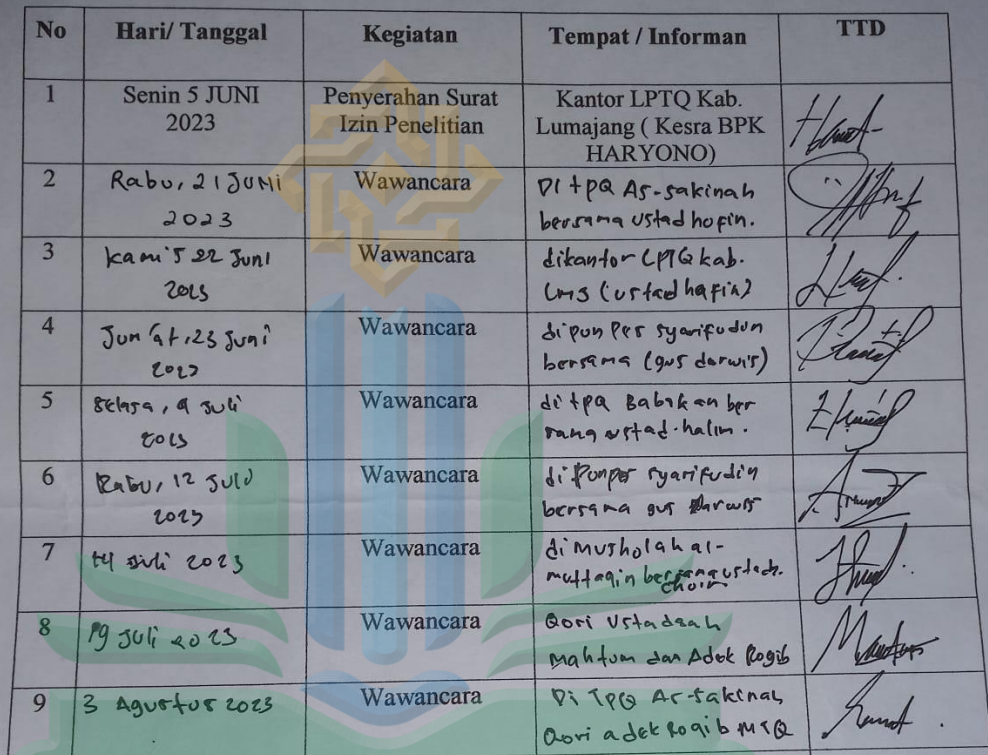 No Hari/ Tanggal Kegiatan Tempat / Informan TTD
1 Senin 5 JUNI Penyerahan Surat Kantor LPTQ Kab.
2023 Izin Penelitian Lumajang ( Kesra BPK
HARYONO)
2 Rabu, 21 JUNI Wawancara Di tpQ As-sakinah
2023 bersama ustad hofin.
3 kamis 22 Juni Wawancara dikantor LPTQ kab.
2023 Lmj (ustad hafin)
4 Jum'at, 23 Juni Wawancara di pon pes syarifudin
2023 bersama (gus darwis)
5 Selasa, 9 Juli Wawancara di tpa Babakan ber
2023 ustad halim.
6 Rabu, 12 Juli Wawancara di Ponpes syarifudin
2023 bersama gus darwis
7 14 Juli 2023 Wawancara di Musholah al-
muttaqin bersama ustadz.
choir
8 19 Juli 2023 Wawancara Qori Ustadzah
Mahtum dan Adek Rogib
9 3 Agustus 2023 Wawancara Di TPQ As-sakinah
Qori adek Rogib MTQ